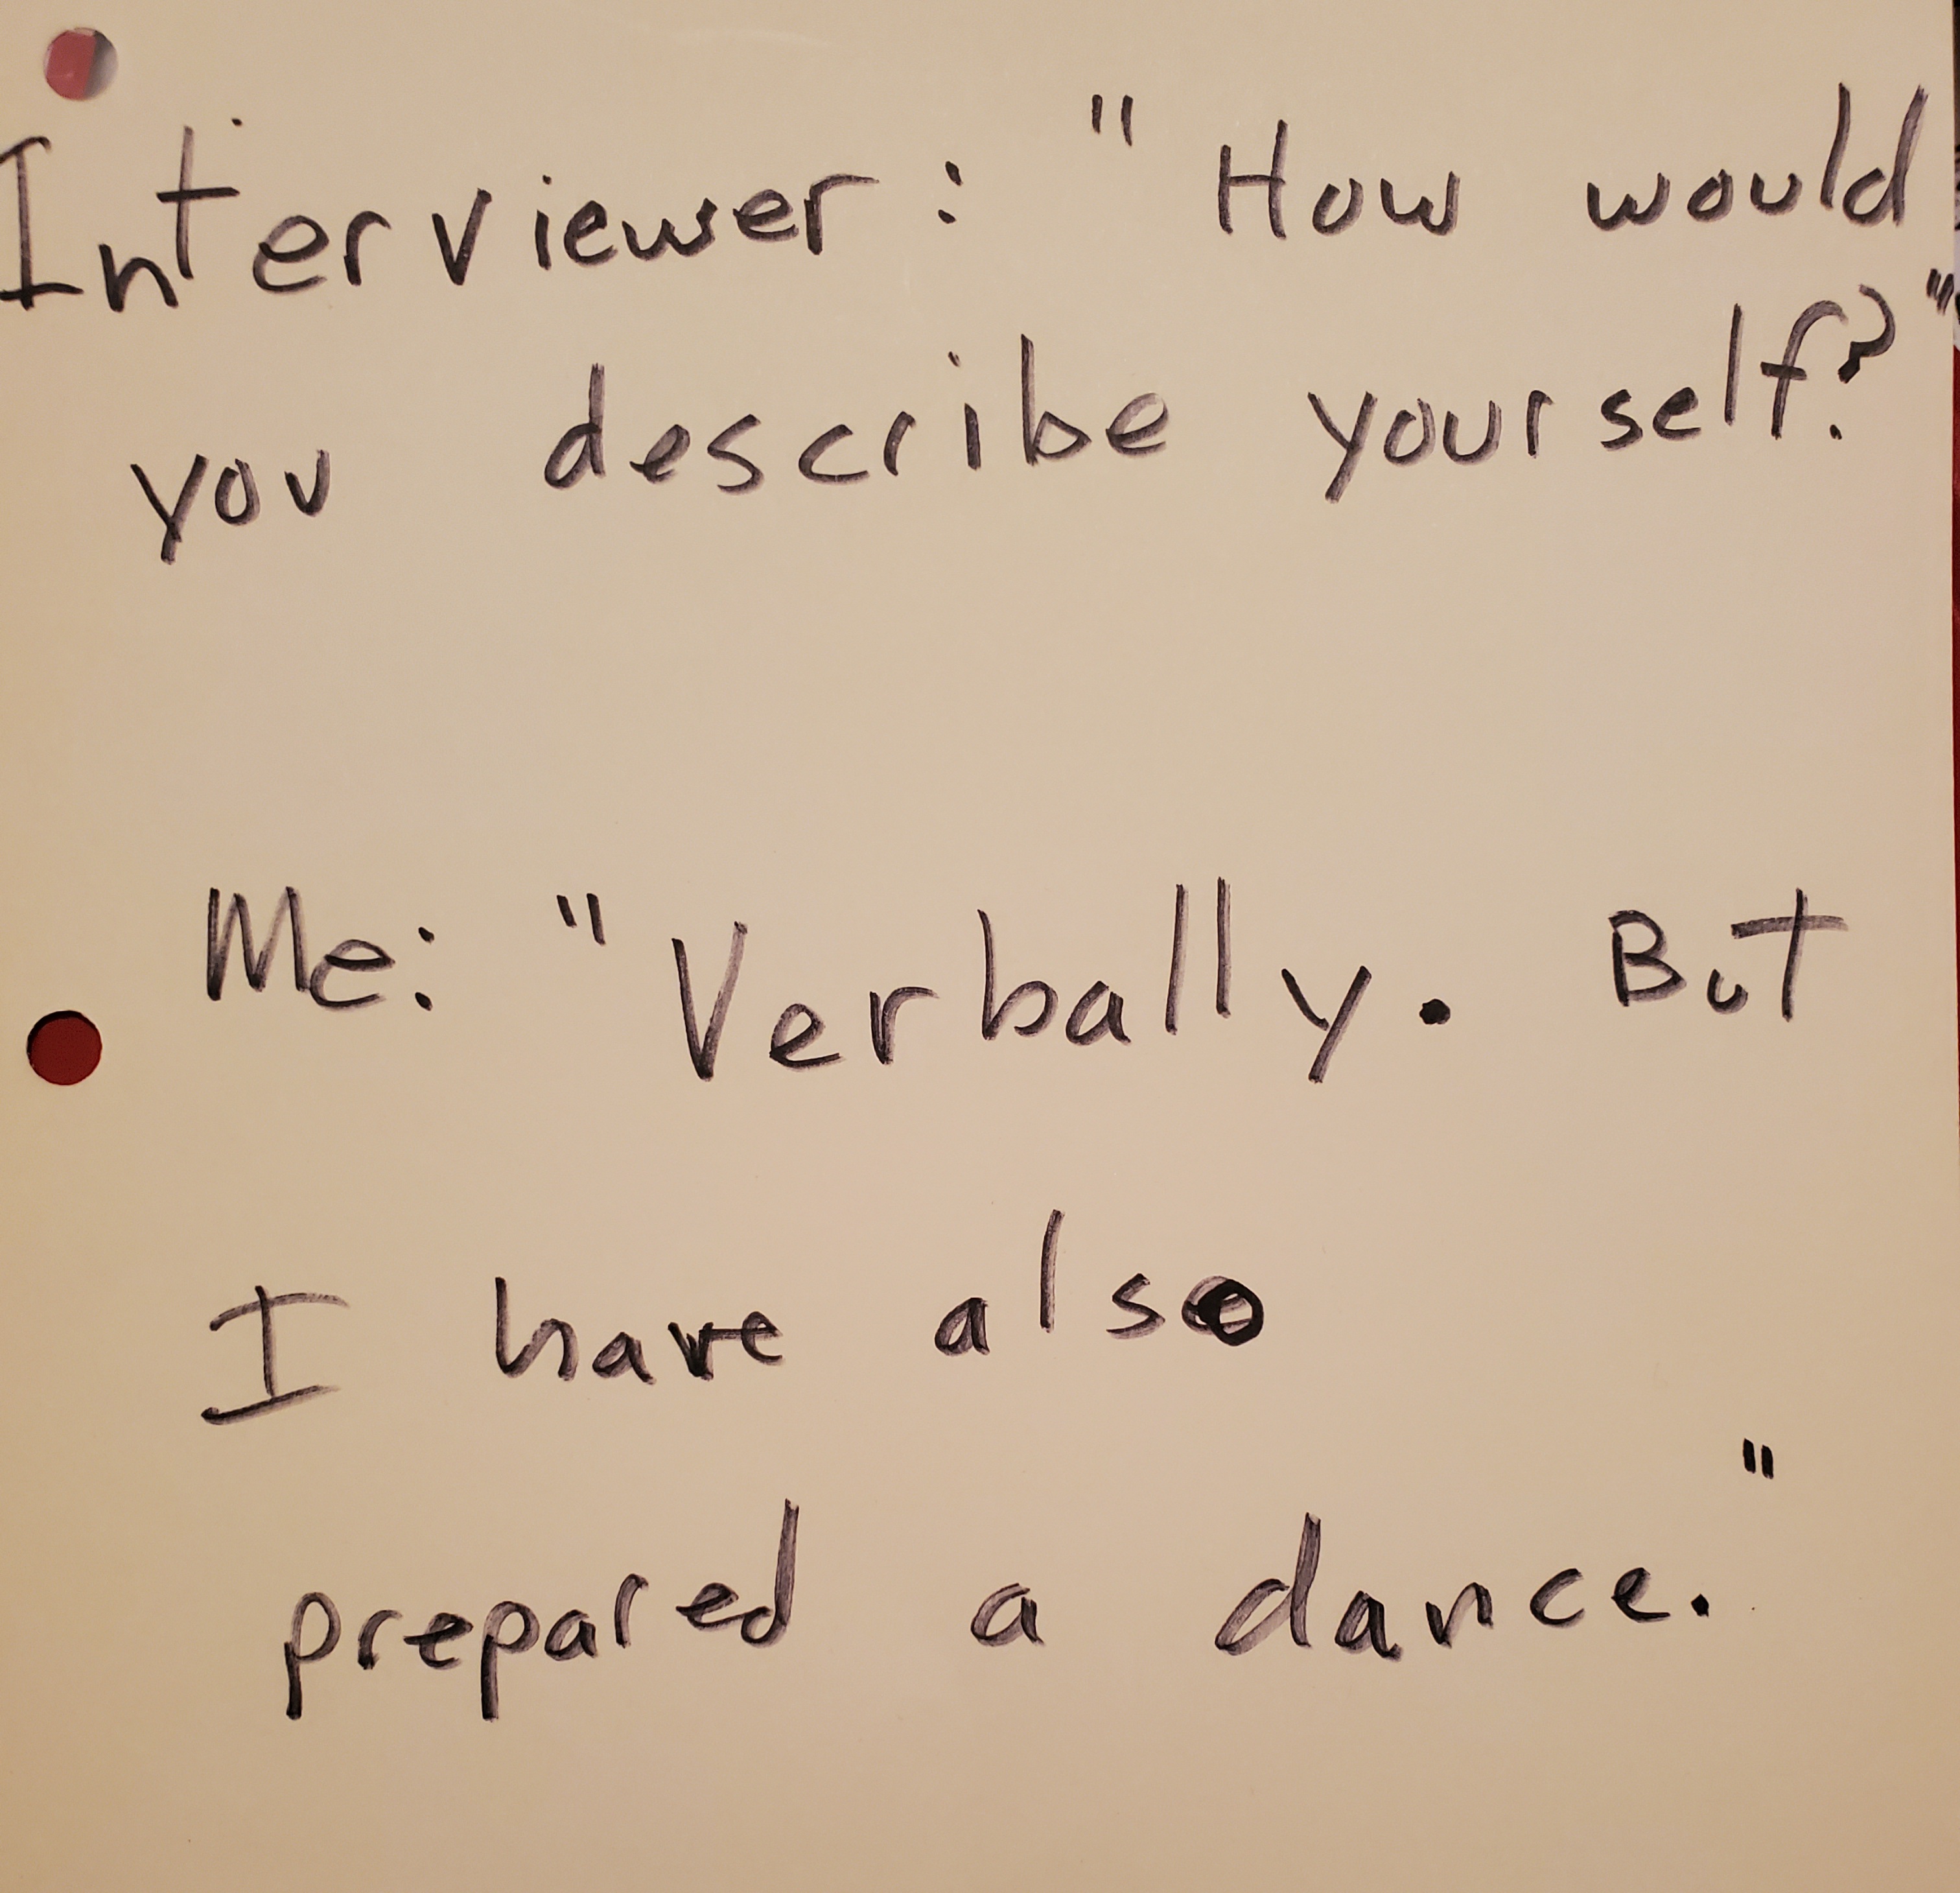 Interviewer: "How would
you describe yourself?"
Me: "Verbally. But
I have also
prepared a dance."